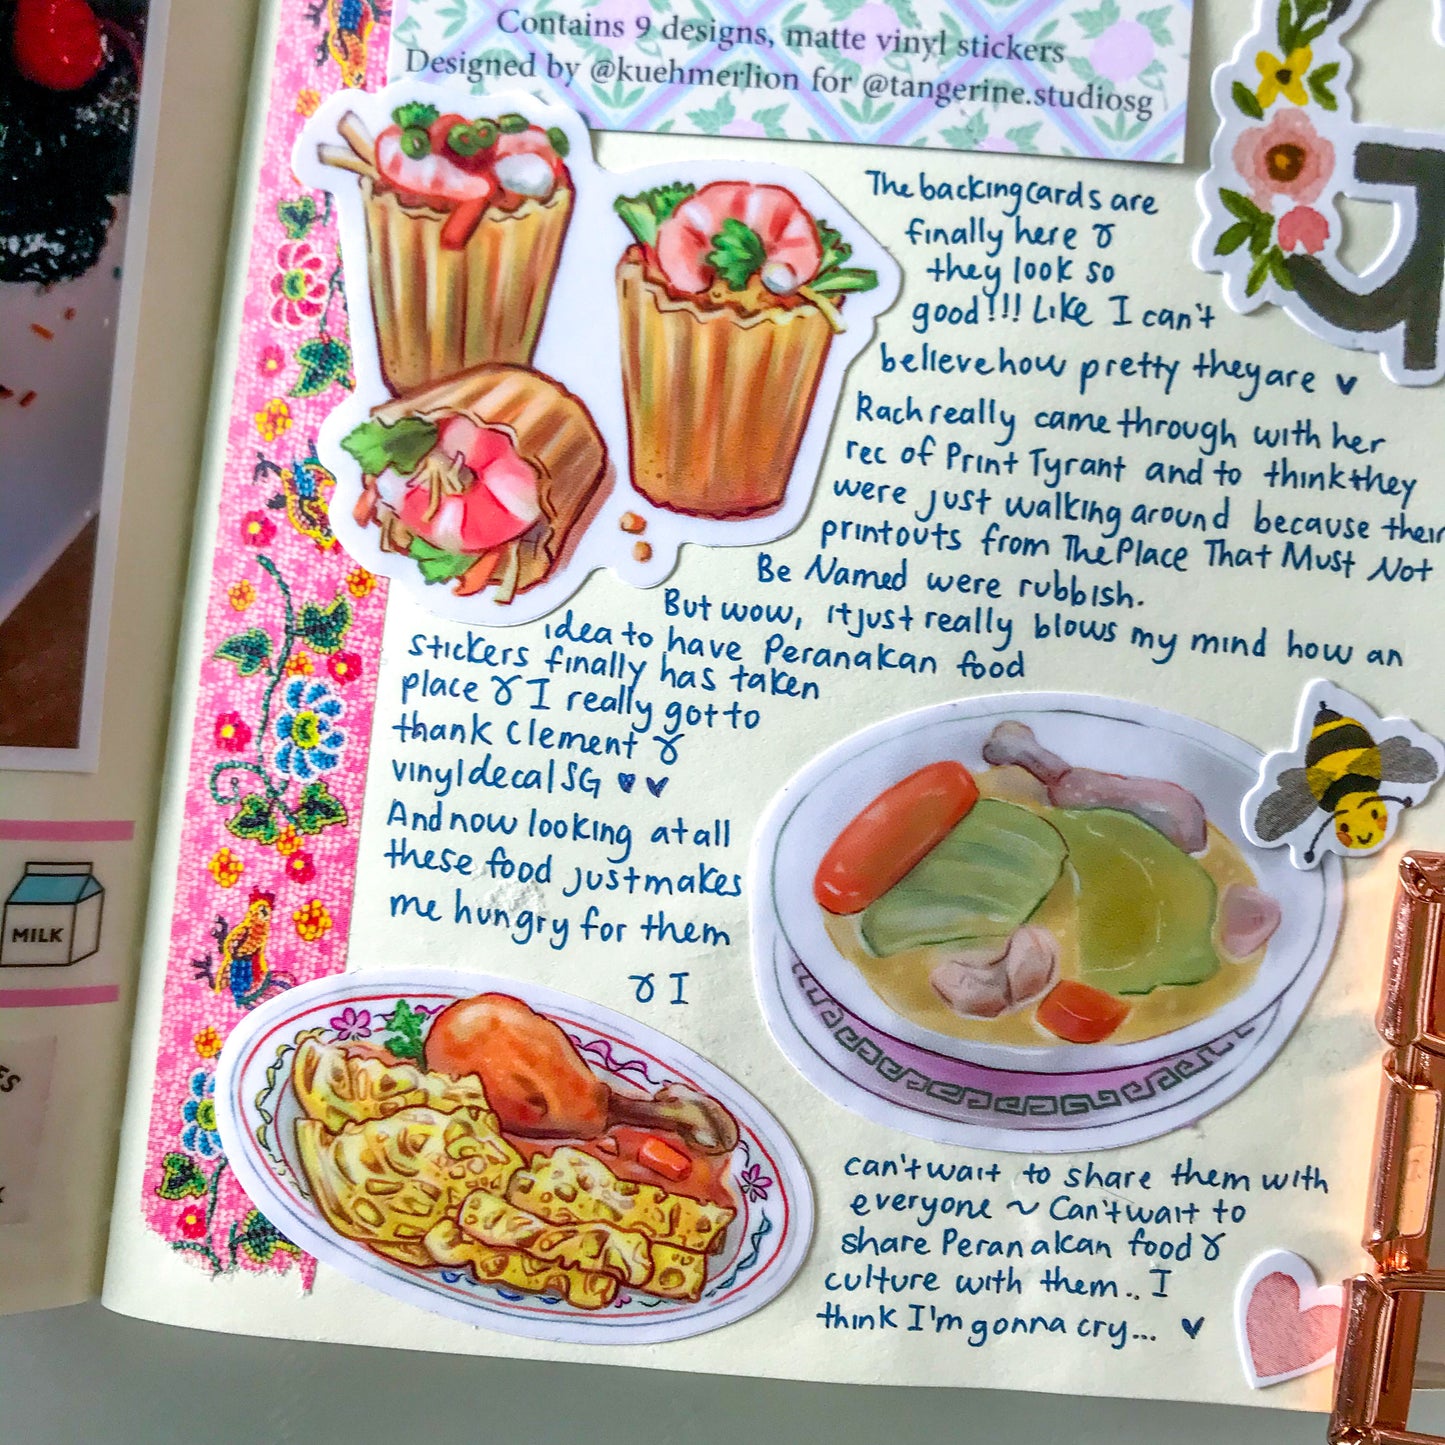 Contains 9 designs, matte vinyl stickers
Designed by @kuehmerlion for @tangerine.studiosg
The backing cards are
finally here &
they look so
good!!! Like I can't
believe how pretty they are ♥
Rach really came through with her
rec of Print Tyrant and to think they
were just walking around because their
printouts from The Place That Must Not
Be Named were rubbish.
But wow, it just really blows my mind how an
idea to have Peranakan food
stickers finally has taken
place & I really got to
thank Clement &
vinyldecalSG ♥ ♥
And now looking at all
these food just makes
me hungry for them
& I
can't wait to share them with
everyone ~ Can't wait to
share Peranakan food &
culture with them.. I
think I'm gonna cry... ♥
MILK